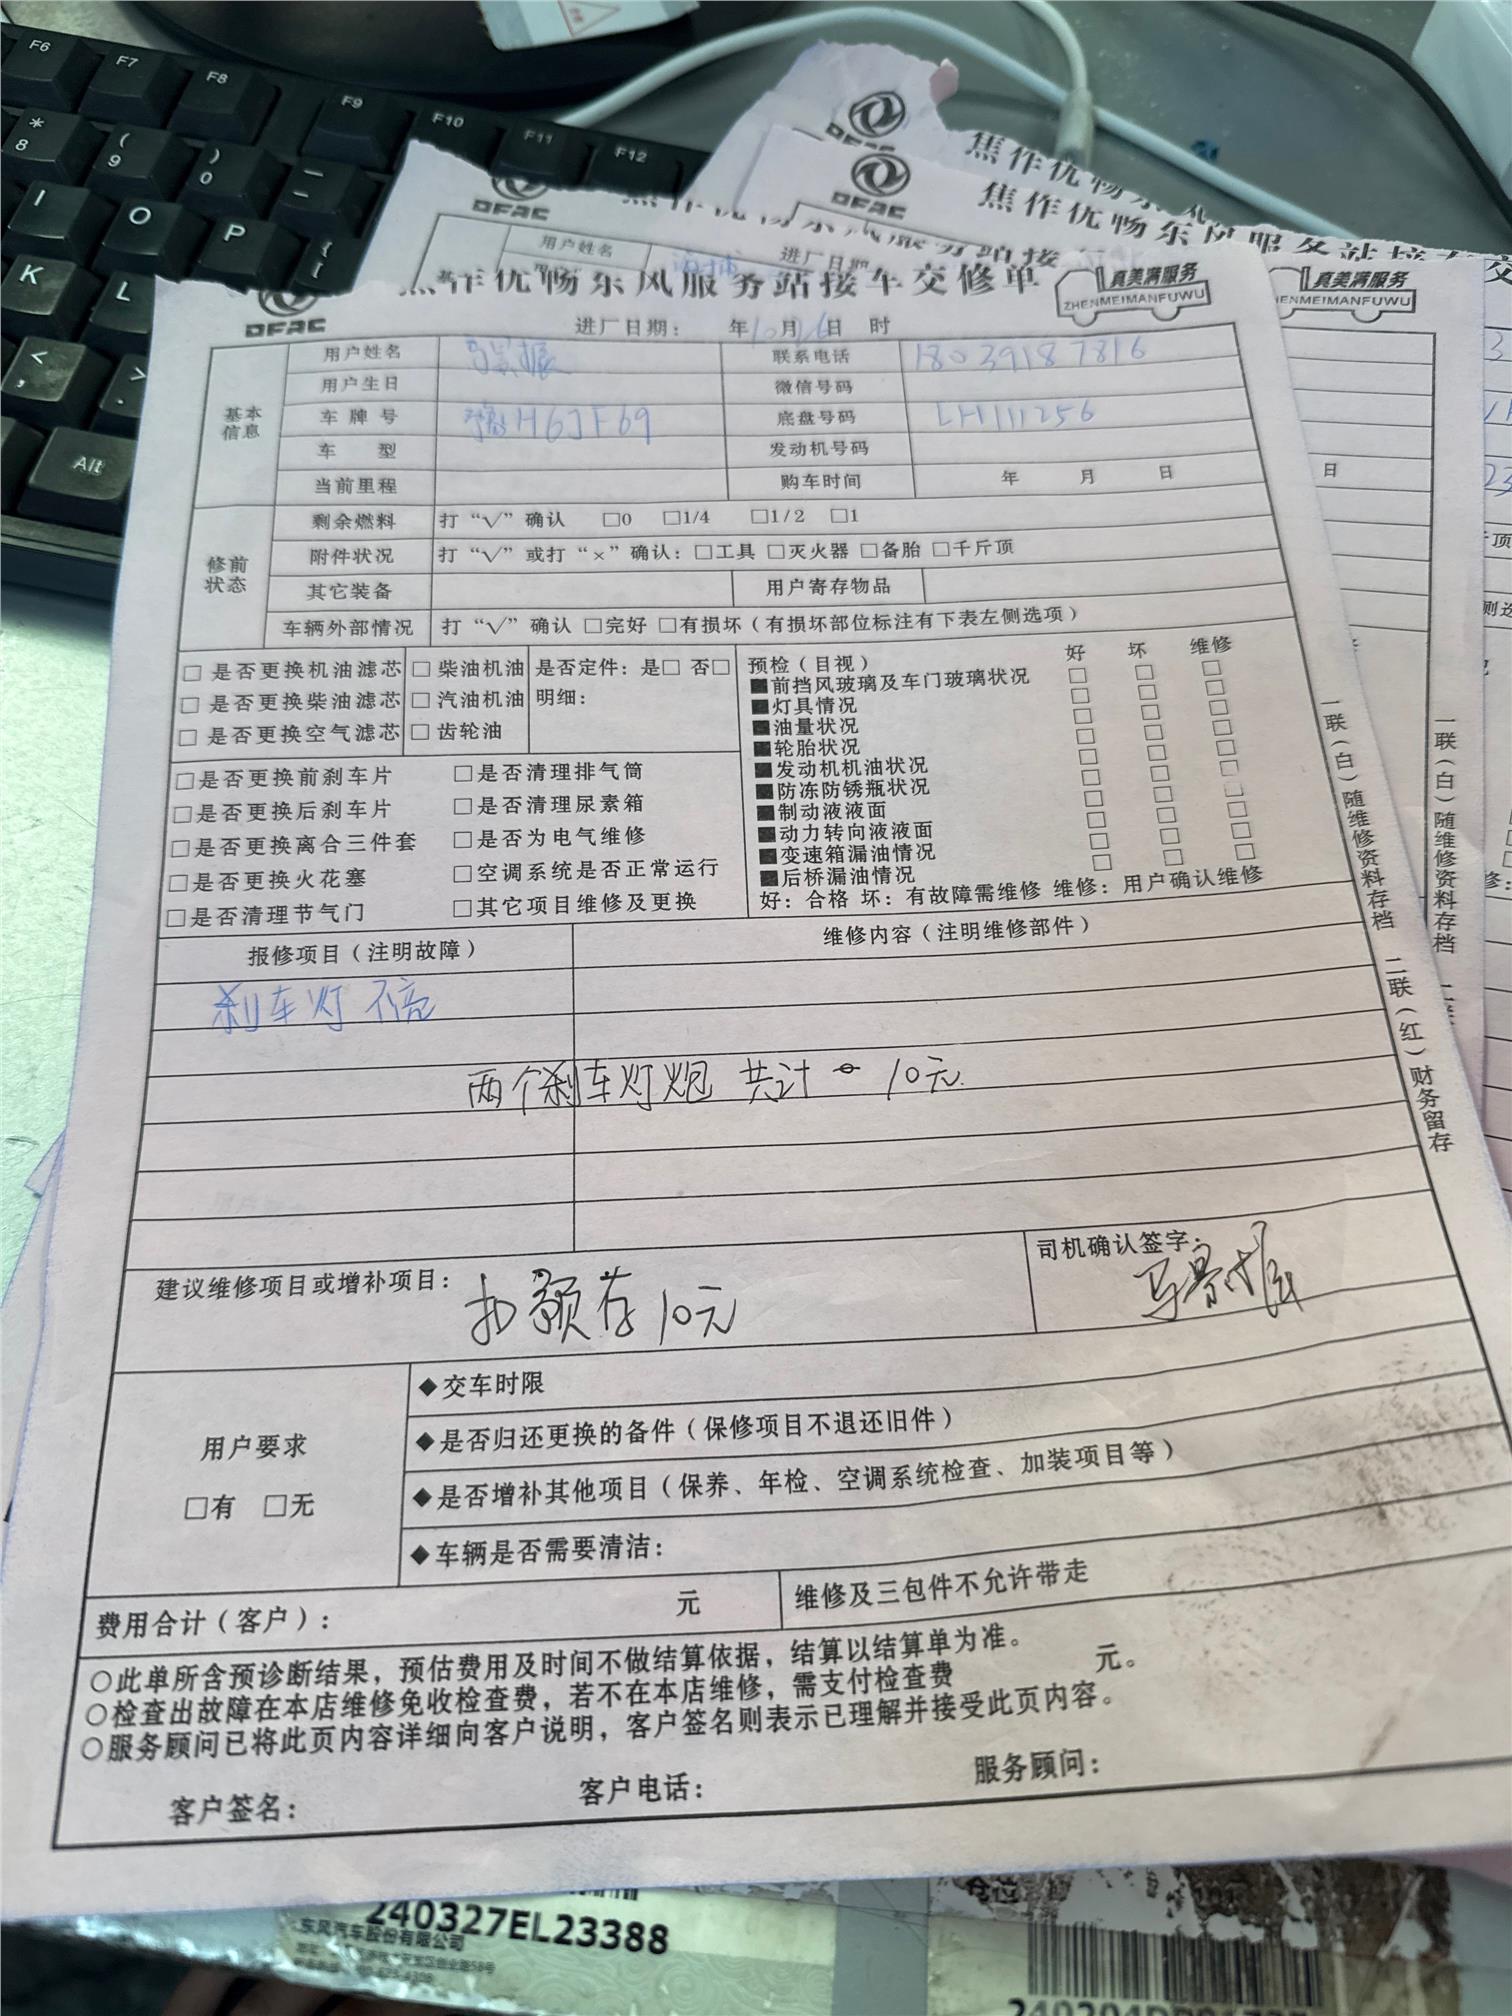 F6
F7
F8
F9
F10
F11
F12
*
8
(
9
)
0
I
O
P
{
[
K
L
<
,
>
Alt
DFAC
焦作优畅东风服务站接
用户姓名
进厂日期
焦作优畅东风服务站接车交修单
真美满服务
ZHENMEIMANFUWU
进厂日期： 年10月26日 时
基本信息
用户姓名 马景振 联系电话 18039187816
用户生日 微信号码
车牌号 豫H6JF69 底盘号码 LH111256
车 型 发动机号码
当前里程 购车时间 年 月 日
修前状态
剩余燃料 打“√”确认 □0 □1/4 □1/2 □1
附件状况 打“√”或打“×”确认：□工具 □灭火器 □备胎 □千斤顶
其它装备 用户寄存物品
车辆外部情况 打“√”确认 □完好 □有损坏（有损坏部位标注有下表左侧选项）
□ 是否更换机油滤芯 □ 柴油机油 是否定件：是□ 否□
□ 是否更换柴油滤芯 □ 汽油机油 明细：
□ 是否更换空气滤芯 □ 齿轮油
□是否更换前刹车片 □是否清理排气筒
□是否更换后刹车片 □是否清理尿素箱
□是否更换离合三件套 □是否为电气维修
□是否更换火花塞 □空调系统是否正常运行
□是否清理节气门 □其它项目维修及更换
预检（目视） 好 坏 维修
■前挡风玻璃及车门玻璃状况 □ □ □
■灯具情况 □ □ □
■油量状况 □ □ □
■轮胎状况 □ □ □
■发动机机油状况 □ □ □
■防冻防锈瓶状况 □ □ □
■制动液液面 □ □ □
■动力转向液液面 □ □ □
■变速箱漏油情况 □ □ □
■后桥漏油情况 □ □ □
好：合格 坏：有故障需维修 维修：用户确认维修
报修项目（注明故障） 维修内容（注明维修部件）
刹车灯不亮
两个刹车灯炮 共计 10元
建议维修项目或增补项目： 扣预存10元
司机确认签字： 马景振
用户要求
□有 □无
◆交车时限
◆是否归还更换的备件（保修项目不退还旧件）
◆是否增补其他项目（保养、年检、空调系统检查、加装项目等）
◆车辆是否需要清洁：
费用合计（客户）： 元 维修及三包件不允许带走
○此单所含预诊断结果，预估费用及时间不做结算依据，结算以结算单为准。
○检查出故障在本店维修免收检查费，若不在本店维修，需支付检查费 元。
○服务顾问已将此页内容详细向客户说明，客户签名则表示已理解并接受此页内容。
客户签名： 客户电话： 服务顾问：
一联（白）随维修资料存档 二联（红）财务留存
真美满服务
日
一联（白）随维修资料存档
240327EL23388
东风汽车股份有限公司